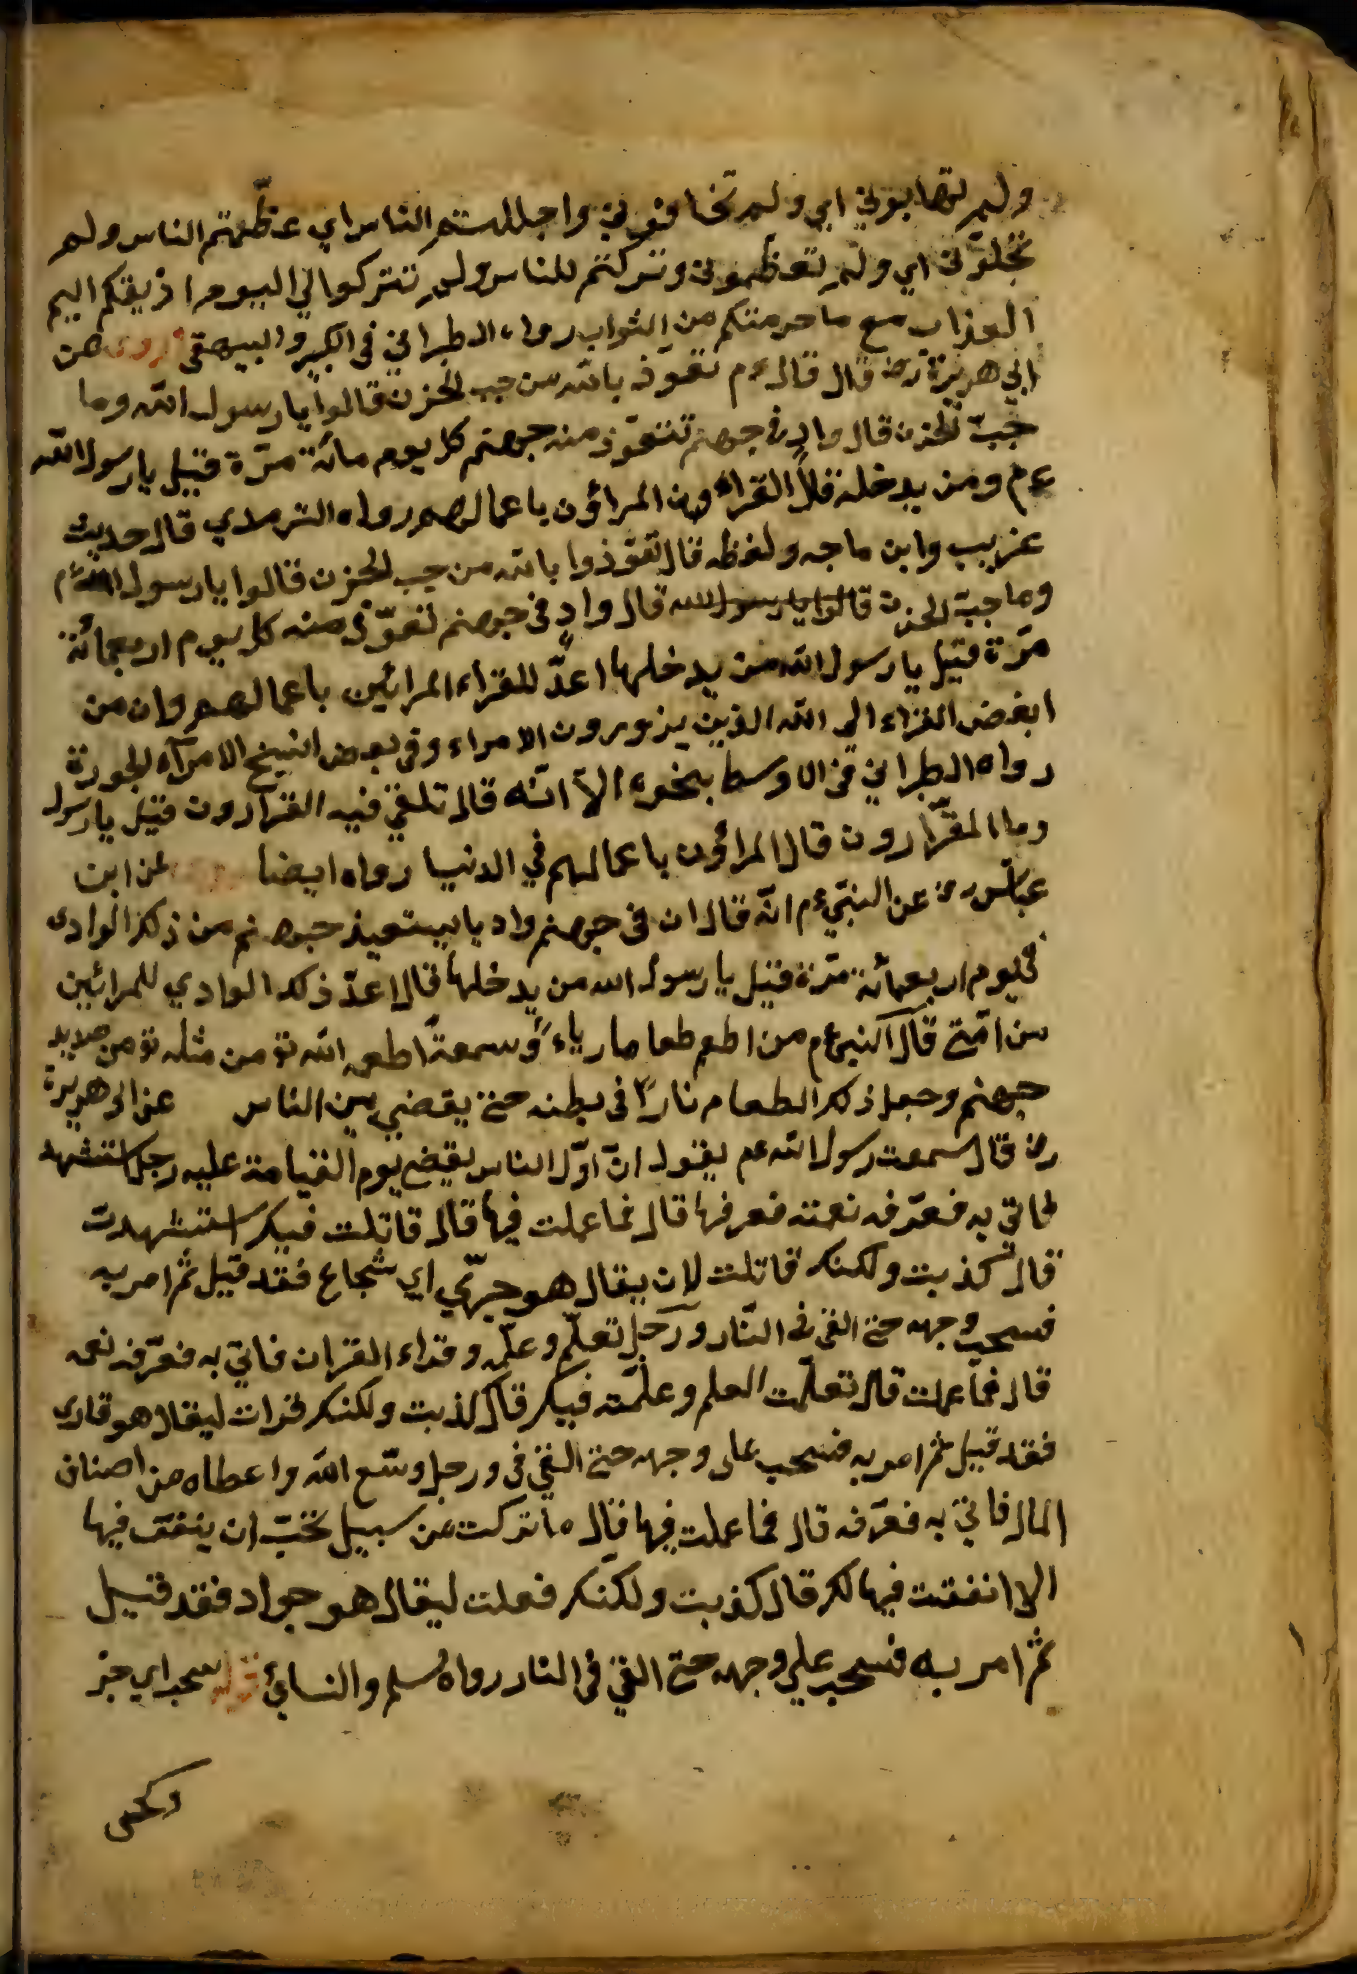 ولم تهابوني اي ولم تخافوني واجللتم الناس اي عظمتم الناس ولم
تجلوني اي ولم تعظموني وتركتم للناس ولم تتركوا لي اليوم اذيقكم اليم
العذاب مع ما حرمتكم من الثواب رواه الطبراني في الكبير والبيهقي روى عن
ابي هريرة رض قال قال عم تعوذ بالله من جب الحزن قالوا يا رسول الله وما
جب الحزن قال واد في جهنم تتعوذ منه جهنم كل يوم مائة مرة قيل يا رسول الله
عم ومن يدخله قال القراء المراؤن باعمالهم رواه الترمذي قال حديث
غريب وابن ماجه ولفظه قال تعوذوا بالله من جب الحزن قالوا يا رسول الله عم
وما جب الحزن قالوا يا رسول الله قال واد في جهنم تعوذ منه كل يوم اربعمائة
مرة قيل يا رسول الله من يدخلها اعد للقراء المرائين باعمالهم وان من
ابغض القراء الى الله الذين يزورون الامراء وفي بعض النسخ الامراء الجورة
رواه الطبراني في الاوسط بنحوه الا انه قال تلقي فيه القرارون قيل يا رسول
وما القرارون قال المراؤن باعمالهم في الدنيا رواه ايضا عن ابن
عباس رض عن النبي عم انه قال ان في جهنم واديا يستعيذ جهنم من ذلك الوادي
في يوم اربعمائة مرة قيل يا رسول الله من يدخلها قال اعد ذلك الوادي للمرائين
من امتي قال النبي عم من اطعم طعاما رياء وسمعة اطعمه الله تع من مثله من صديد
جهنم وجعل ذلك الطعام نارا في بطنه حتى يقضي بين الناس عن ابي هريرة
رض قال سمعت رسول الله عم يقول ان اول الناس يقضى يوم القيامة عليه رجل استشهد
فاتي به فعرفه نعمته فعرفها قال فما عملت فيها قال قاتلت فيك استشهدت
قال كذبت ولكنك قاتلت لان يقال هو جري اي شجاع فقد قيل ثم امر به
فسحب وجهه حتى القي في النار ورجل تعلم وعلمه وقراء القران فاتي به فعرفه نعمه
قال فما عملت قال تعلمت العلم وعلمته فيك قال كذبت ولكنك قرات ليقال هو قارى
فقد قيل ثم امر به فسحب على وجهه حتى القي في ورجل وسع الله واعطاه من اصناف
المال فاتي به فعرفه قال فما عملت فيها قال ما تركت من سبيل تحب ان ينفق فيها
الا انفقت فيها لك قال كذبت ولكنك فعلت ليقال هو جواد فقد قيل
ثم امر به فسحب على وجهه حتى القي في النار رواه مسلم والنسائي قوله سحب اي جر